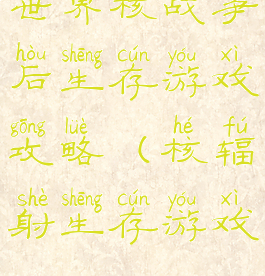 世界核战争
hòu shēng cún yóu xì
后生存游戏
gōng lüè hé fú
攻略（核辐
shè shēng cún yóu xì
射生存游戏